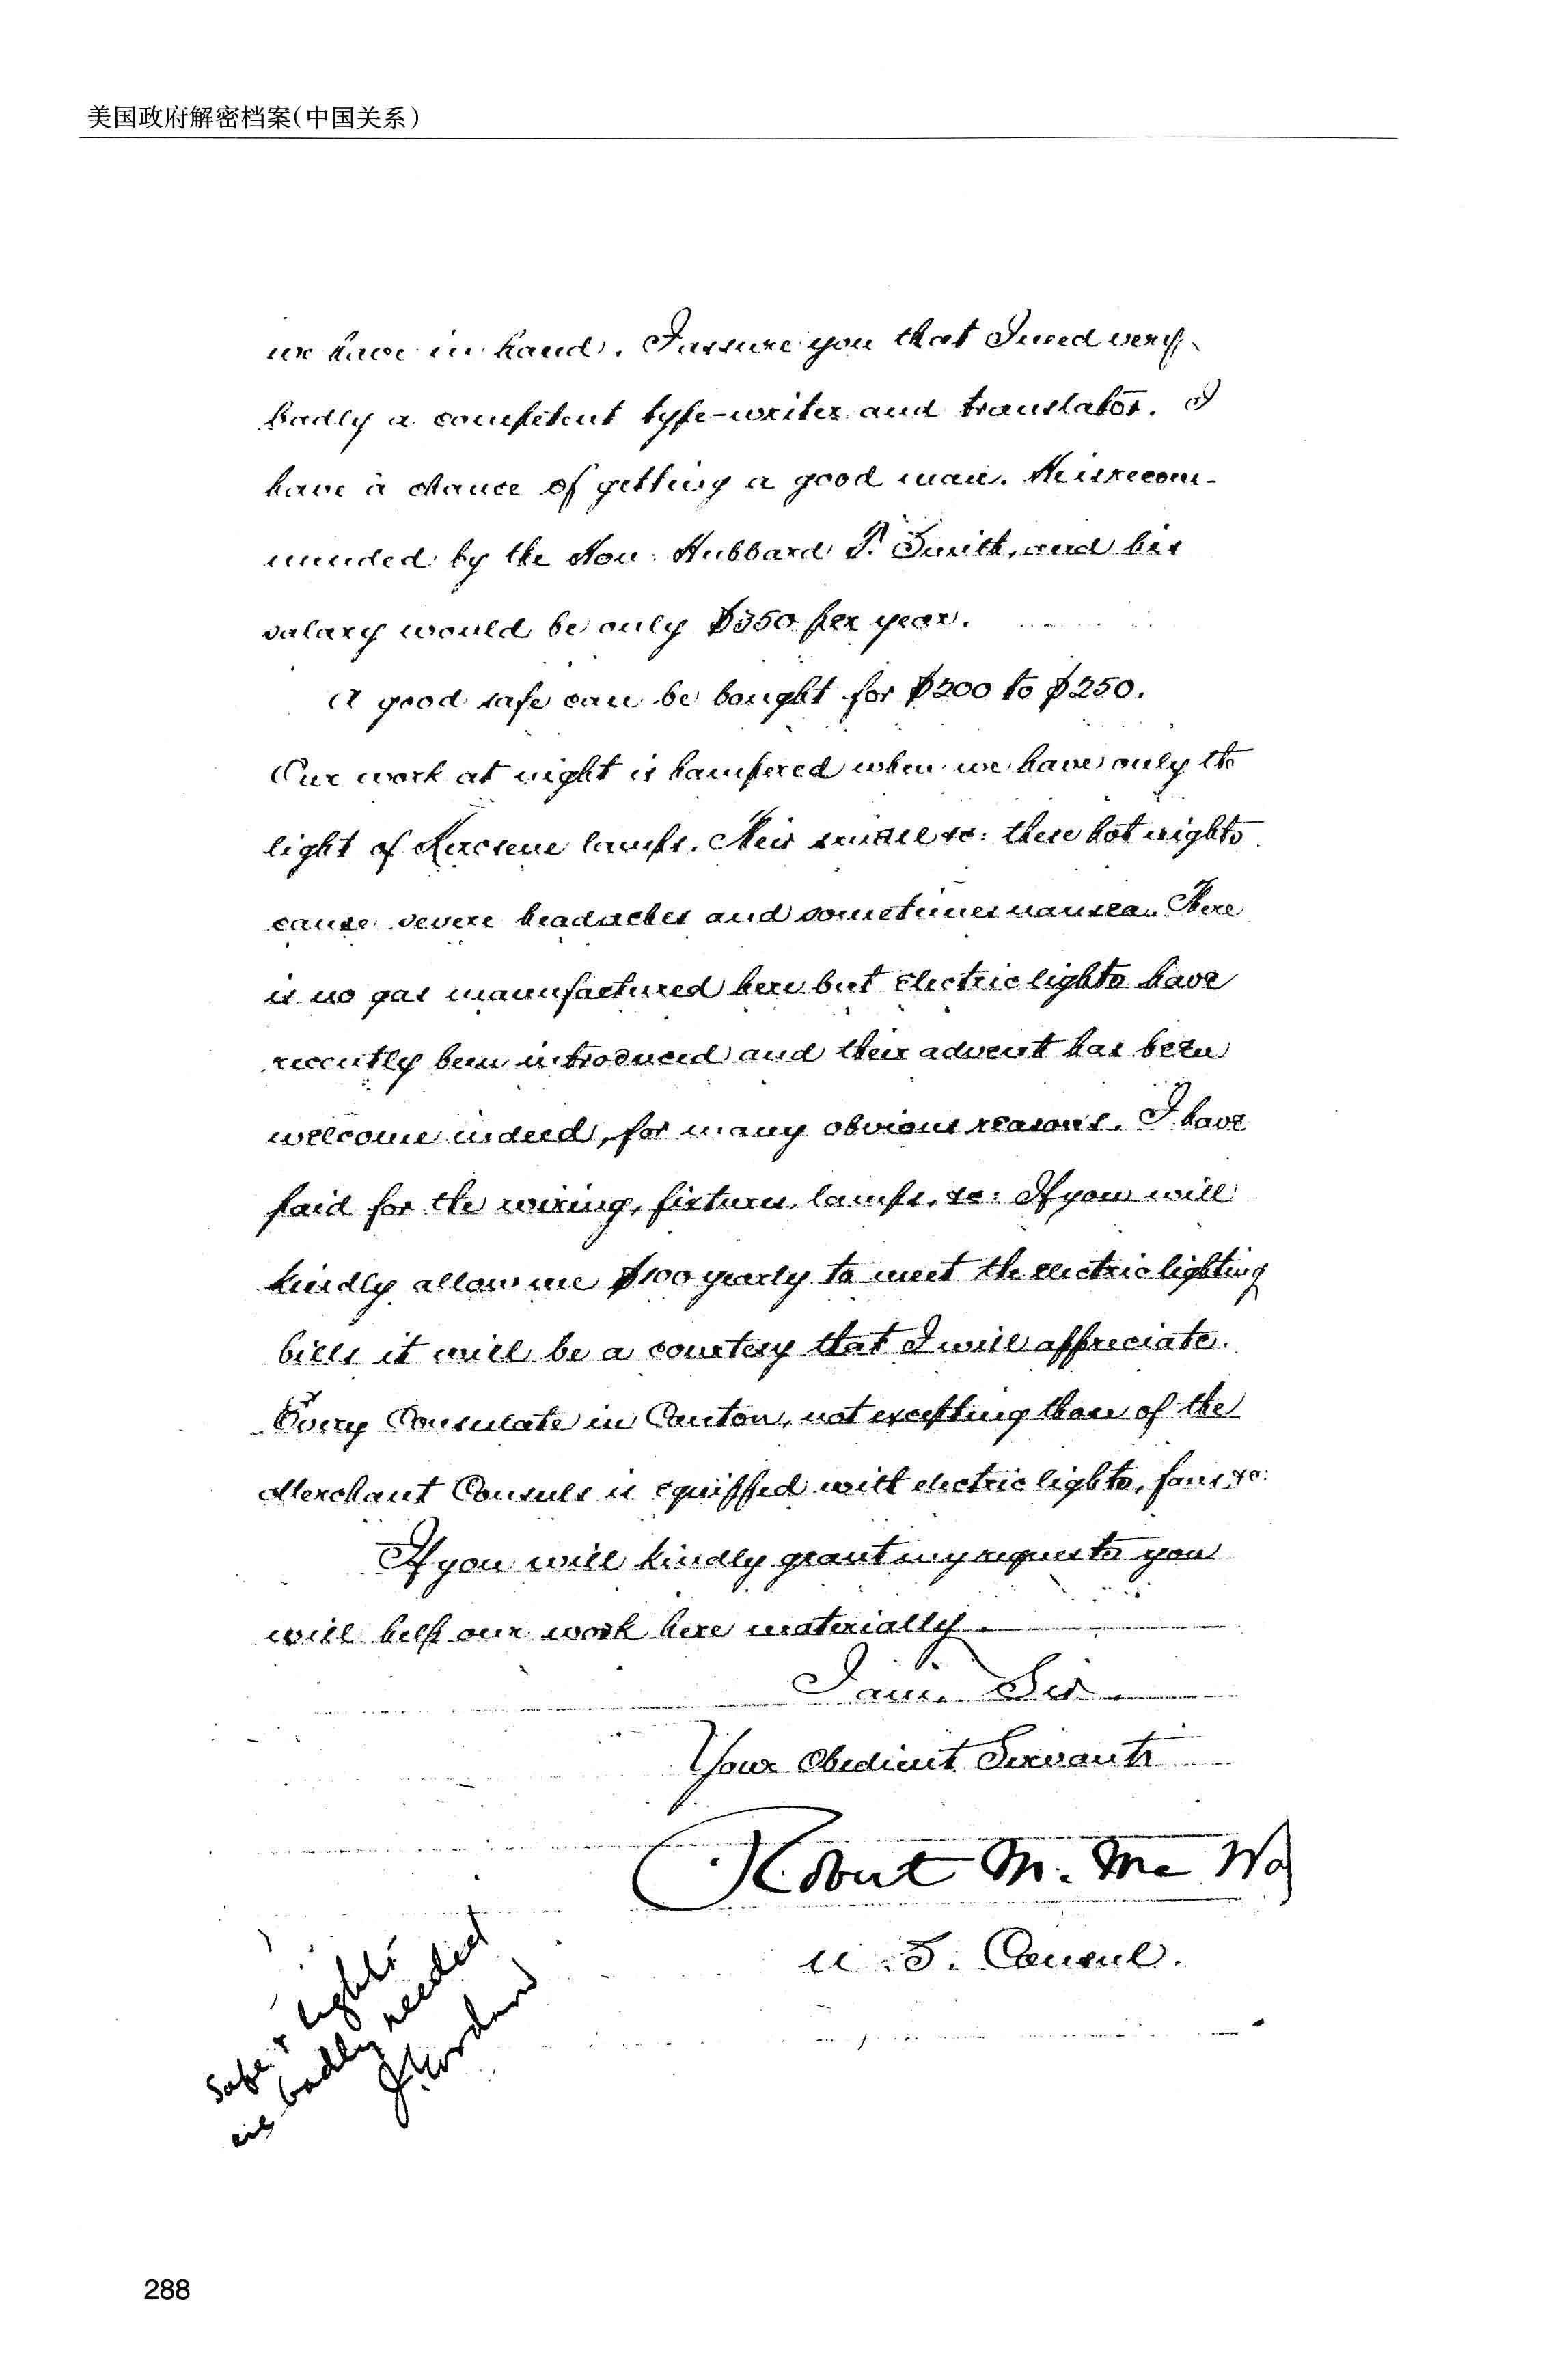 美国政府解密档案(中国关系)
we have in hand. I assure you that I need very
badly a competent type-writer and translator. I
have a chance of getting a good man. He is recom-
mended by the Hon: Hubbard T. Smith, and his
salary would be only $350 per year.
A good safe can be bought for $200 to $250.
Our work at night is hampered when we have only the
light of Kerosene lamps. Their smoke &c: these hot nights
cause severe headaches and sometimes nausea. There
is no gas manufactured here but electric lights have
recently been introduced and their advent has been
welcome indeed, for many obvious reasons. I have
paid for the wiring, fixtures, lamps, &c: If you will
kindly allow me $100 yearly to meet the electric lighting
bills it will be a courtesy that I will appreciate.
Every Consulate in Canton, not excepting those of the
Merchant Consuls is equipped with electric lights, fans, &c:
If you will kindly grant my requests you
will help our work here materially.
I am, Sir,
Your Obedient Servant,
Robert M. Mc Wa
U.S. Consul.
Safe & lights
are badly needed
288